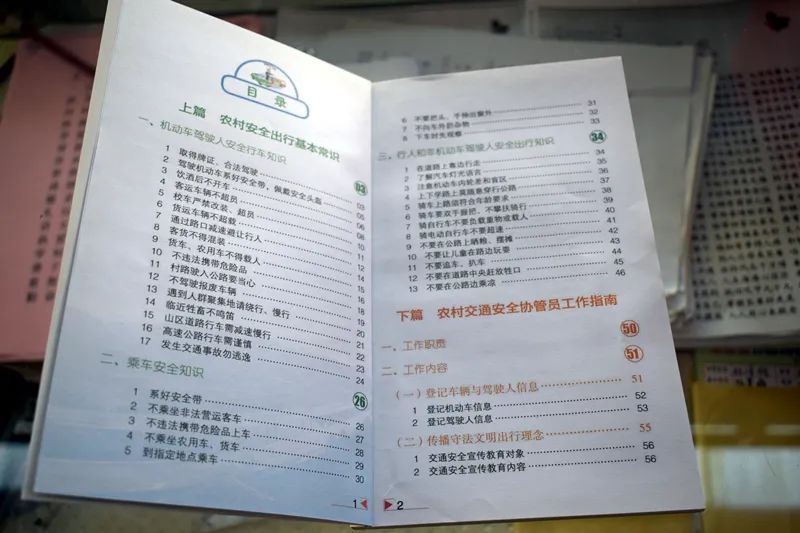 目录
上篇 农村安全出行基本常识
一、机动车驾驶人安全行车知识 03
1 取得牌证、合法驾驶 03
2 驾驶机动车系好安全带，佩戴安全头盔
3 饮酒后不开车
4 客运车辆不超员
5 校车严禁改装、超员
6 货运车辆不超载
7 通过路口减速避让行人
8 客货不得混装
9 货车、农用车不得载人
10 不违法携带危险品
11 村路驶入公路要当心
12 不驾驶报废车辆
13 遇到人群聚集地请绕行、慢行
14 临近牲畜不鸣笛
15 山区道路行车需减速慢行
16 高速公路行车需谨慎
17 发生交通事故勿逃逸 24
二、乘车安全知识 26
1 系好安全带 26
2 不乘坐非法营运客车 27
3 不违法携带危险品上车 28
4 不乘坐农用车、货车 29
5 到指定地点乘车 30
1
6 不要把头、手伸出窗外 31
7 不向车外扔杂物 32
8 下车时先观察 33
三、行人和非机动车驾驶人安全出行知识 34
1 在道路上靠边行走 34
2 了解汽车灯光语言 35
3 注意机动车内轮差和盲区 36
4 上下学路上莫随意穿行公路 37
5 骑车上路须符合年龄要求 38
6 骑车要双手握把、不攀扶骑行 39
7 骑自行车不要负载重物或载人 40
8 骑电动自行车不要超速 41
9 不要在公路上晒粮、摆摊 42
10 不要让儿童在路边玩耍 43
11 不要追车、扒车 44
12 不要在道路中央赶放牲口 45
13 不要在公路边乘凉 46
下篇 农村交通安全协管员工作指南
一、工作职责 50
二、工作内容 51
（一）登记车辆与驾驶人信息 51
1 登记机动车信息 52
2 登记驾驶人信息 53
（二）传播守法文明出行理念 55
1 交通安全宣传教育对象 56
2 交通安全宣传教育内容 56
2